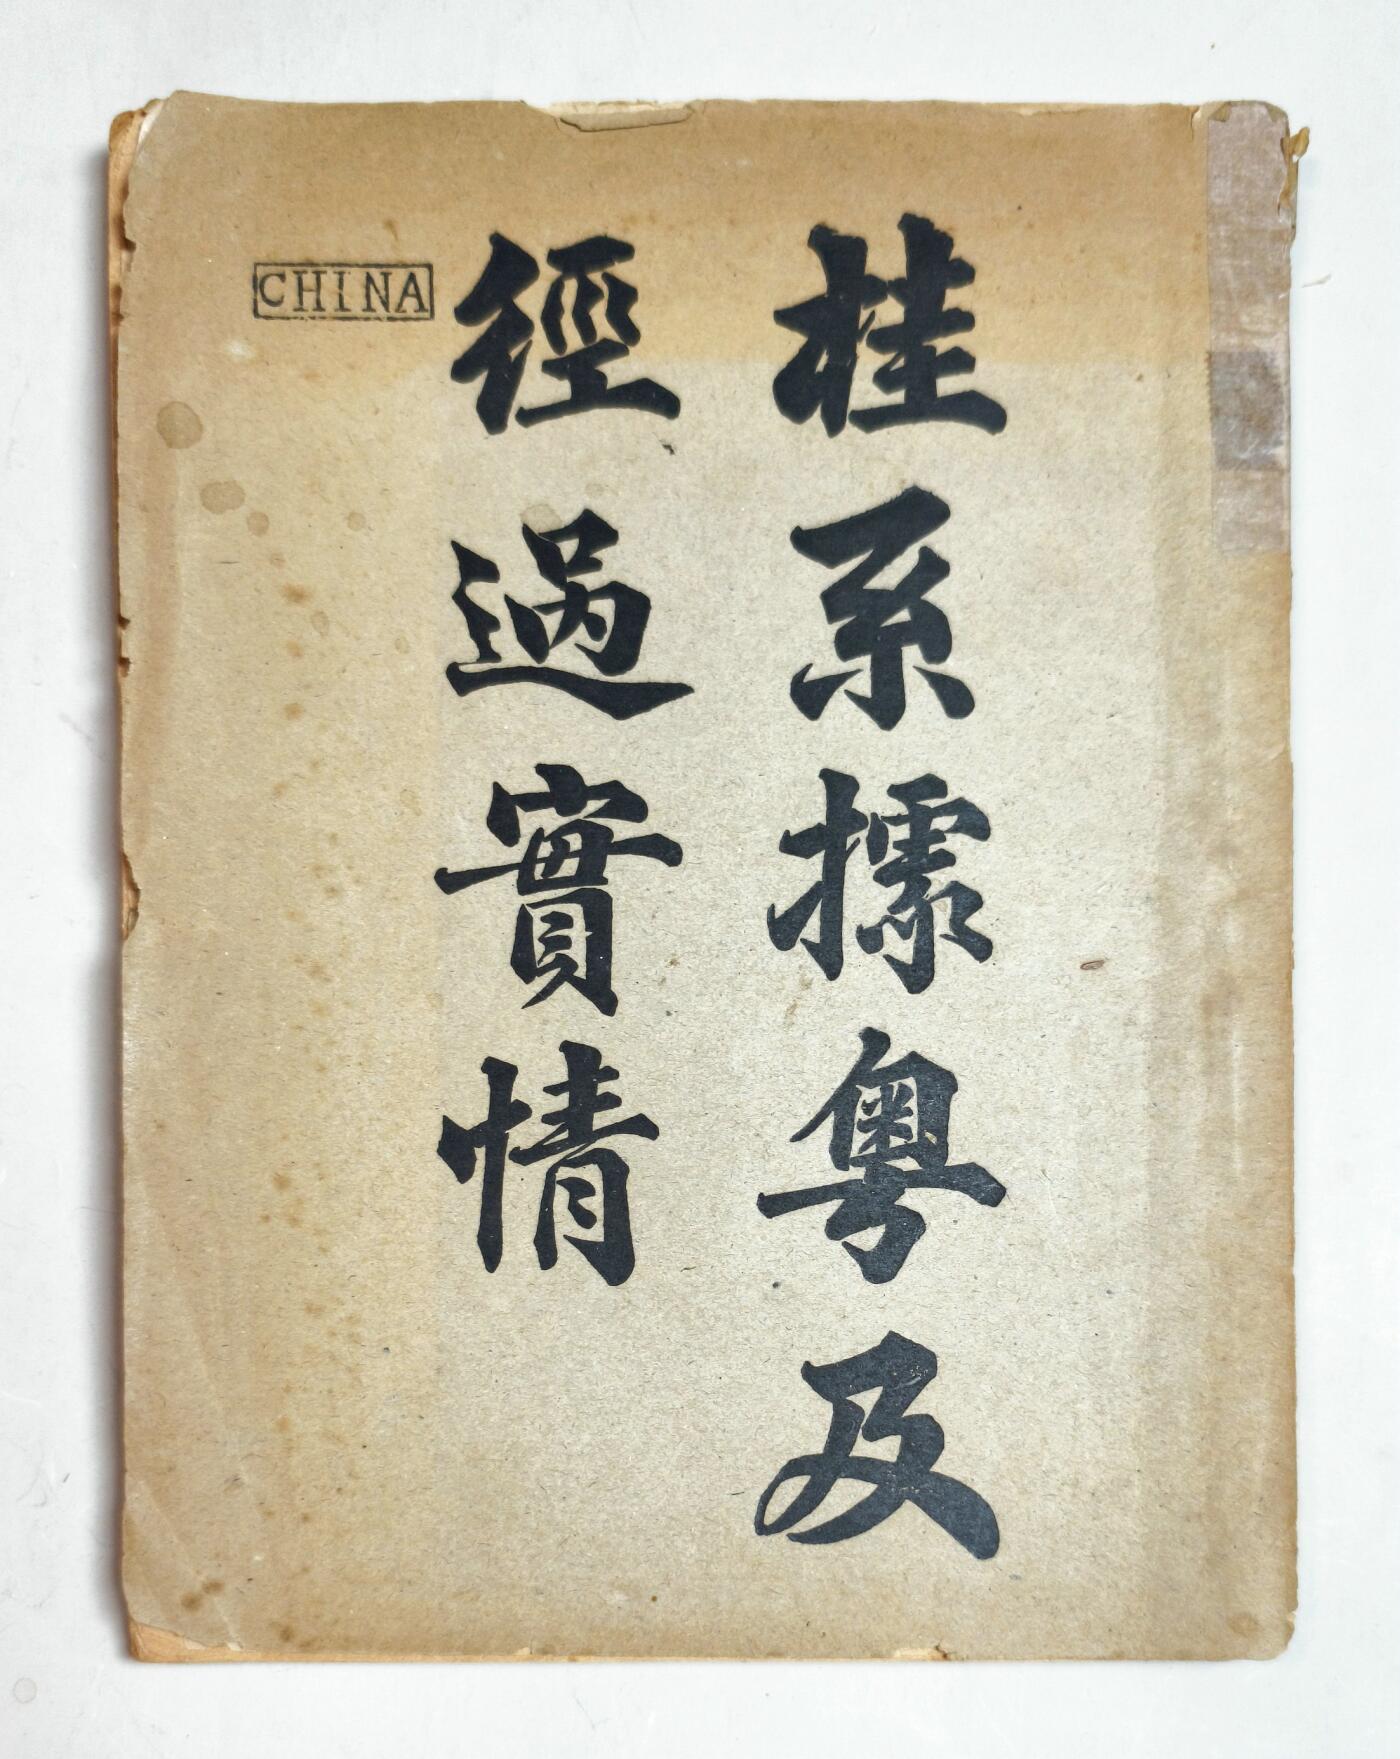 桂系據粵及
徑過實情
CHINA